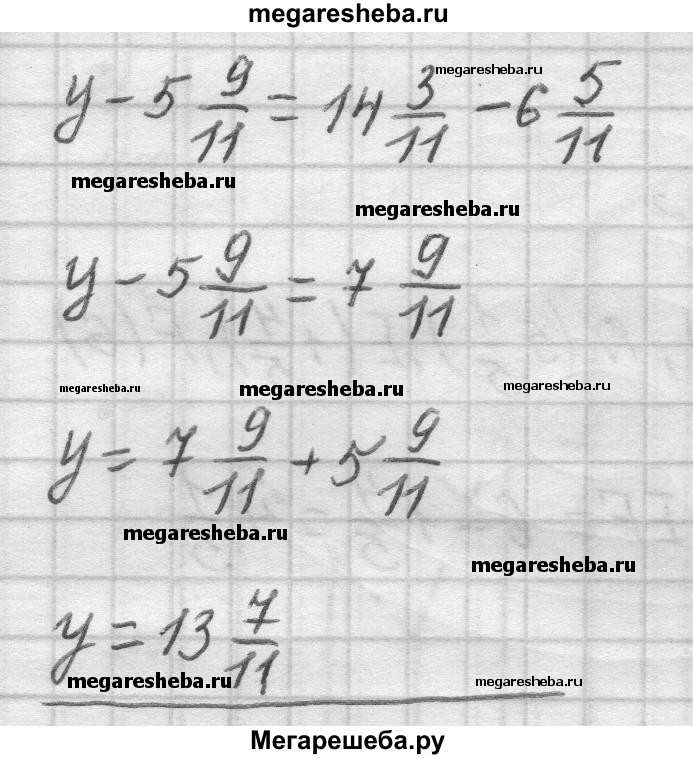 megaresheba.ru
megaresheba.ru
y - 5 9/11 = 14 3/11 - 6 5/11
megaresheba.ru
megaresheba.ru
y - 5 9/11 = 7 9/11
megaresheba.ru megaresheba.ru megaresheba.ru
y = 7 9/11 + 5 9/11
megaresheba.ru
megaresheba.ru
y = 13 7/11
megaresheba.ru megaresheba.ru
Мегарешеба.ру